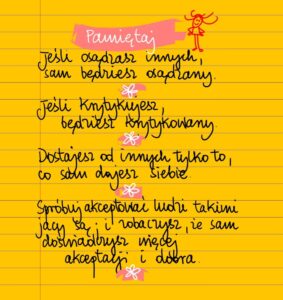 Pamiętaj
Jeśli osądzasz innych,
sam będziesz osądzany.
Jeśli krytykujesz,
będziesz krytykowany.
Dostajesz od innych tylko to,
co sam dajesz siebie.
Spróbuj akceptować ludzi takimi
jacy są, i zobaczysz, że sam
doświadczysz więcej
akceptacji i dobra.